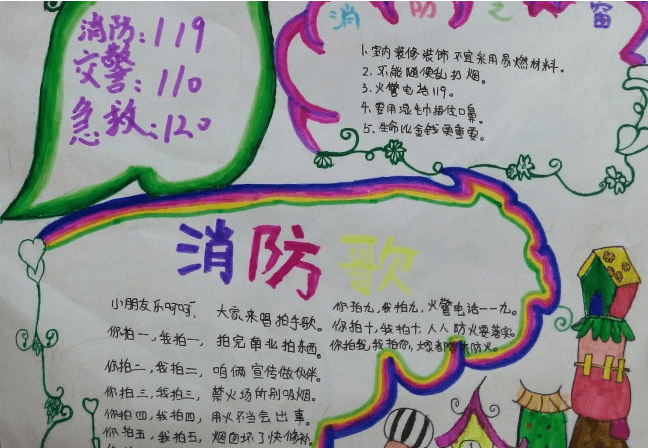 消防:119
交警:110
急救:120
消防之窗
1.室内装修装饰不宜采用易燃材料。
2.不能随便乱扔烟。
3.火警电话119。
4.要用湿毛巾捂住口鼻。
5.生命比金钱更重要。
消防歌
小朋友乐呵呵, 大家来唱拍手歌。
你拍一,我拍一, 拍完单业拍东西。
你拍二,我拍二, 咱俩宣传做伙伴。
你拍三,我拍三, 禁火场所别吸烟。
你拍四,我拍四, 用火不当会出事。
你拍五,我拍五, 烟囱坏了快修补。
你拍九,我拍九,火警电话一一九。
你拍十,我拍十,人人防火要落实。
你拍我,我拍你,
防火。